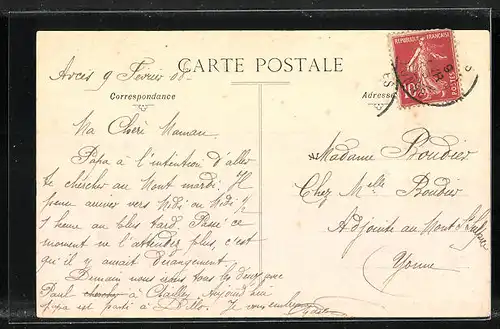 Arcis 9 Février 08.
CARTE POSTALE
Correspondance
Adresse
REPUBLIQUE FRANÇAISE
POSTES
10
Ma Chère Maman
Papa a l'intention d'aller
te chercher au Mont mardi. Il
pense arriver vers Midi ou Midi ½
1 heure au plus tard. Passé ce
moment ne l'attendez plus, c'est
qu'il y aurait dérangement.
Demain nous irons tous les deux avec
Paul chercher à Chailley. Aujourd'hui
papa est parti à Je vous embrasse
Madame Boudier
Chez Melle Boudier
Adjointe au Mont St Sulpice
Yonne